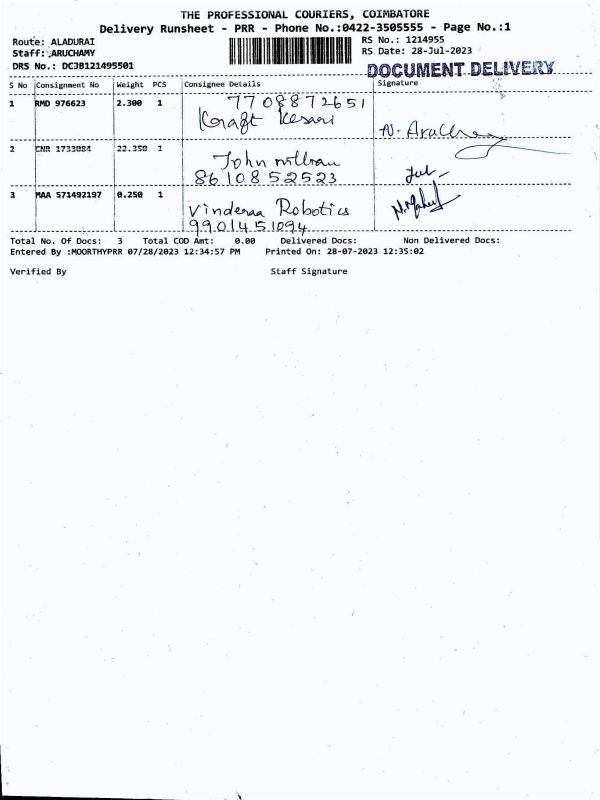 THE PROFESSIONAL COURIERS, COIMBATORE
Delivery Runsheet - PRR - Phone No.:0422-3505555 - Page No.:1
Route: ALADURAI RS No.: 1214955
Staff: ARUCHAMY RS Date: 28-Jul-2023
DRS No.: DCJB121495501 DOCUMENT DELIVERY
S No Consignment No Weight PCS Consignee Details Signature
1 RMD 976623 2.300 1 7708872651
Kraft Kesari N. Aruchamy
2 CNR 1733084 22.350 1 John
8610852523
3 MAA 571492197 0.250 1
Vinderaa Robotics
9901451094
Total No. Of Docs: 3 Total COD Amt: 0.00 Delivered Docs: Non Delivered Docs:
Entered By :MOORTHYPRR 07/28/2023 12:34:57 PM Printed On: 28-07-2023 12:35:02
Verified By Staff Signature